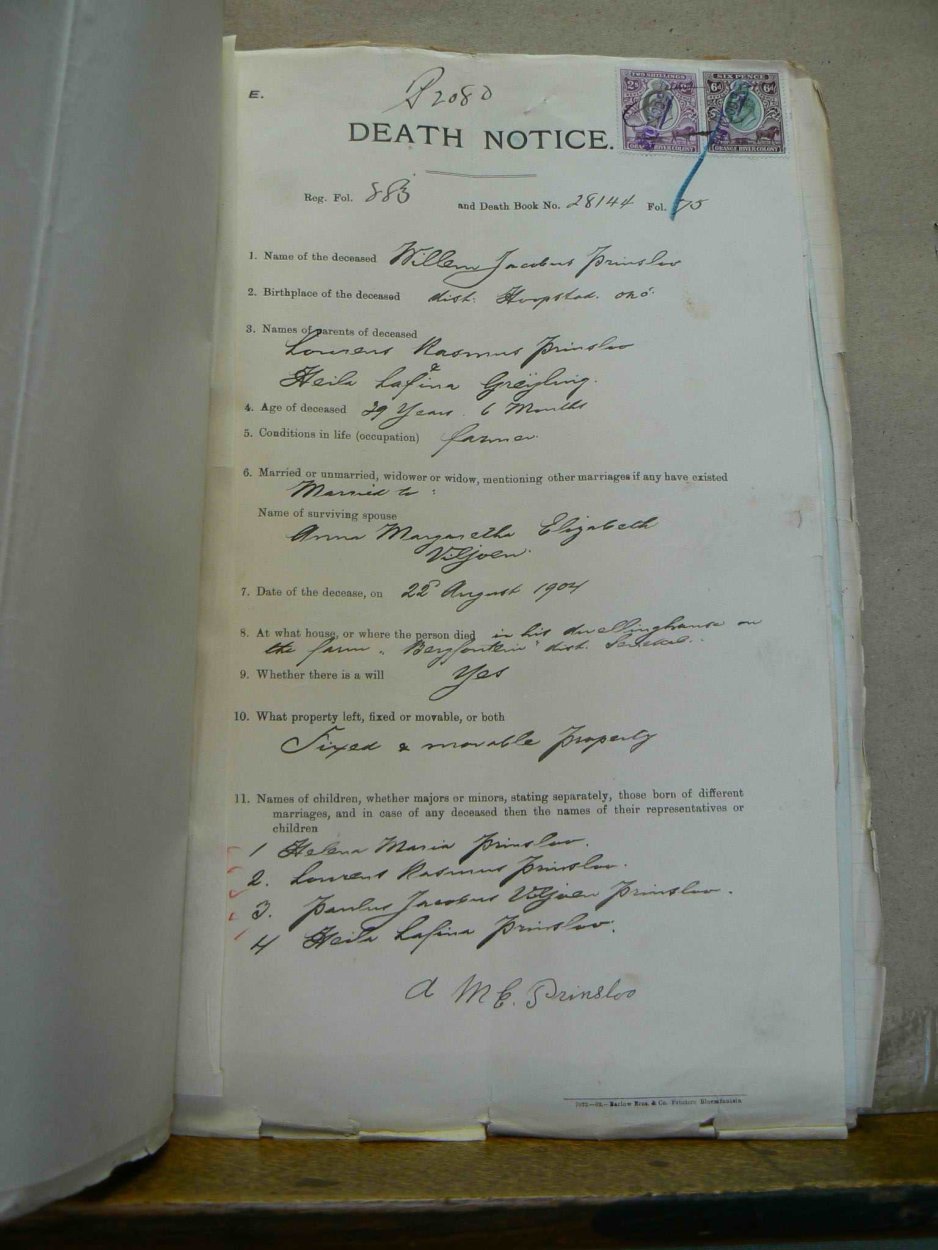 E.
P2080
TWO SHILLINGS
2s
ORANGE RIVER COLONY
SIX PENCE
6d 6d
ORANGE RIVER COLONY
DEATH NOTICE.
Reg. Fol. 883 and Death Book No. 28144 Fol. 75
1. Name of the deceased Willem Jacobus Prinsloo
2. Birthplace of the deceased dist. Hoopstad.
3. Names of parents of deceased
Lourens Rasmus Prinsloo
&
Heila Lafina Greÿling.
4. Age of deceased 39 Years. 6 Months
5. Conditions in life (occupation) farmer.
6. Married or unmarried, widower or widow, mentioning other marriages if any have existed
Married to:
Name of surviving spouse
Anna Margaretha Elizabeth
Viljoen.
7. Date of the decease, on 22d August 1904
8. At what house, or where the person died in his dwellinghouse on
the farm „Bergfontein" dist. Senekal.
9. Whether there is a will Yes
10. What property left, fixed or movable, or both
Fixed & movable Property
11. Names of children, whether majors or minors, stating separately, those born of different
marriages, and in case of any deceased then the names of their representatives or
children
1 Helena Maria Prinsloo.
2. Lourens Rasmus Prinsloo.
3. Paulus Jacobus Viljoen Prinsloo.
4 Heila Lafina Prinsloo.
A M E. Prinsloo
Barlow Bros. & Co. Printers Bloemfontein